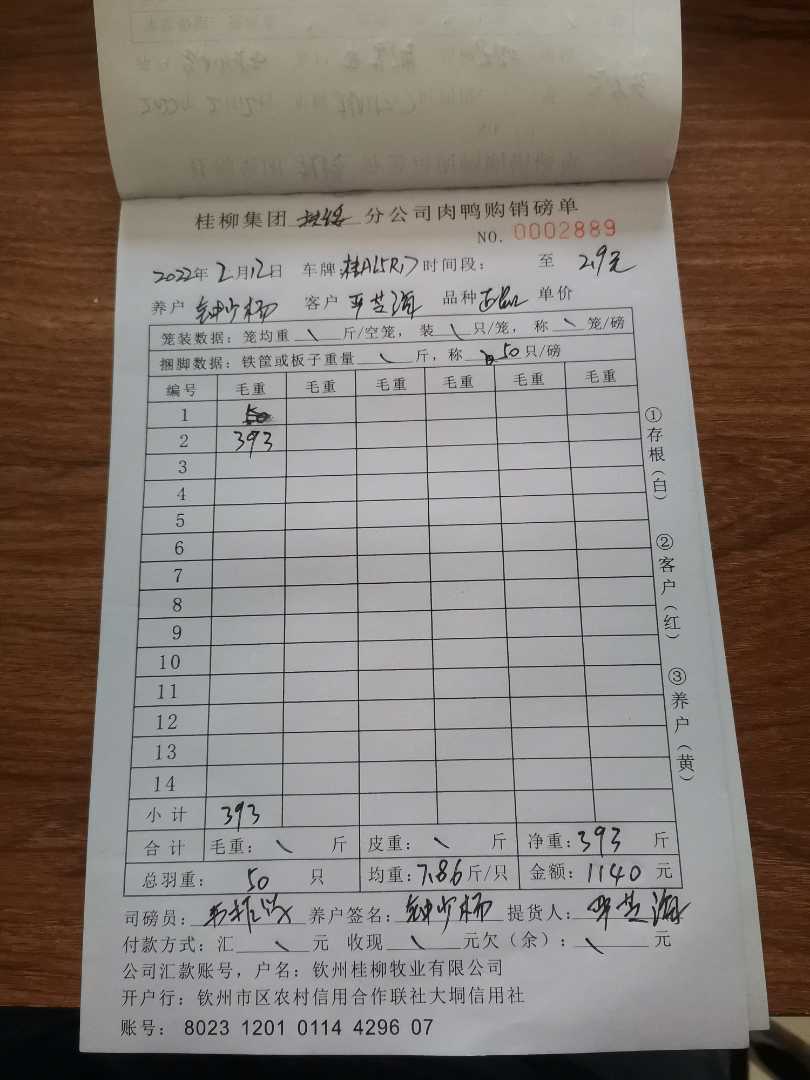 桂柳集团 分公司肉鸭购销磅单
NO. 0002889
2022年 2月12日 车牌: 时间段: 至 2.9元
养户 钟少杨 客户 品种 正品 单价
笼装数据: 笼均重 \ 斤/空笼, 装 \ 只/笼, 称 \ 笼/磅
捆脚数据: 铁筐或板子重量 \ 斤, 称 50 只/磅
编号 毛重 毛重 毛重 毛重 毛重 毛重
1
2 393
3
4
5
6
7
8
9
10
11
12
13
14
小计 393
合计 毛重: \ 斤 皮重: \ 斤 净重: 393 斤
总羽重: 50 只 均重: 7.86 斤/只 金额: 1140 元
司磅员: 养户签名: 钟少杨 提货人:
付款方式: 汇 \ 元 收现 \ 元欠(余): \ 元
公司汇款账号, 户名: 钦州桂柳牧业有限公司
开户行: 钦州市区农村信用合作联社大垌信用社
账号: 8023 1201 0114 4296 07
①存根(白)
②客户(红)
③养户(黄)